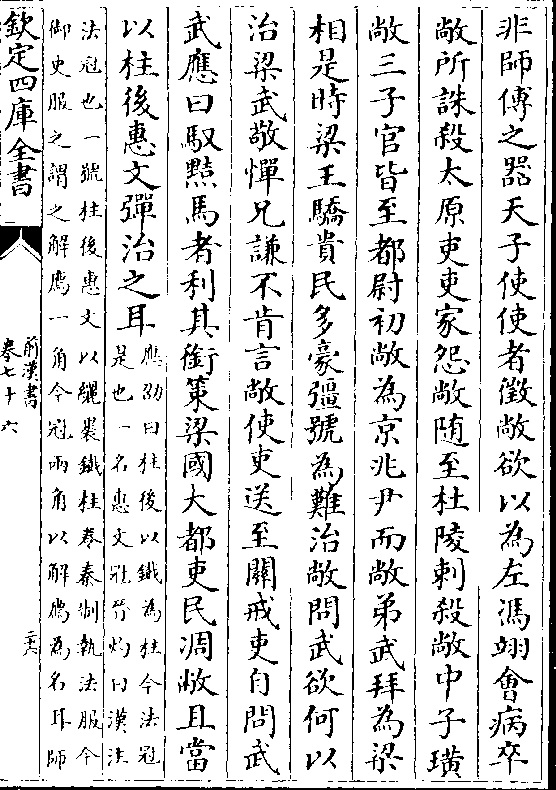 非師傅之器天子使使者徵敞欲以為左馮翊會病卒
敞所誅殺太原吏吏家怨敞随至杜陵刺殺敞中子璜
敞三子官皆至都尉初敞為京兆尹而敞弟武拜為梁
相是時梁王驕貴民多豪彊號為難治敞問武欲何以
治梁武敬憚兄謙不肯言敞使吏送至關戒吏自問武
武應曰馭黠馬者利其銜策梁國大都吏民凋敝且當
以柱後惠文彈治之耳
應劭曰柱後以鐵為柱今法冠
是也一名惠文冠晉灼曰漢注
法冠也一號柱後惠文以纚裹鐵柱卷秦制執法服今
御史服之謂之解廌一角今冠兩角以解廌為名耳師
欽定四庫全書
前漢書
卷七十六
二六